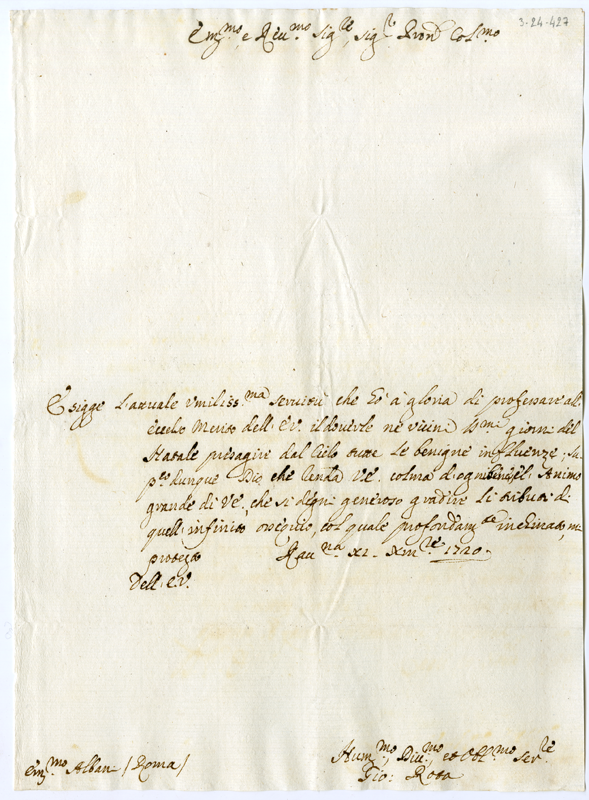 3-24-427
Em.mo e Reu.mo Sig.re, Sig.r Pron. Col.mo
Esigge l'attuale vmiliss.ma seruitù che hò à gloria di professare all'
eccelso Merito dell'E.V. il douerle ne vicini s.mi giorni del
Natale presagire dal Cielo tutte le benigne influenze; Su
p.co dunque Dio, che renda V.E. colma d'ogni bene, e l'Animo
grande di V.E. che si degni generoso gradire li tributi di
quell'infinito ossequio, col quale profondam.te inchinato, mi
protesto Rau.na XI. Xm.re 1720.
Dell'E.V.
Em.mo Albani (Roma)
Hum.mo, Diu.mo, et Obl.mo Ser.re
Gio: Rota